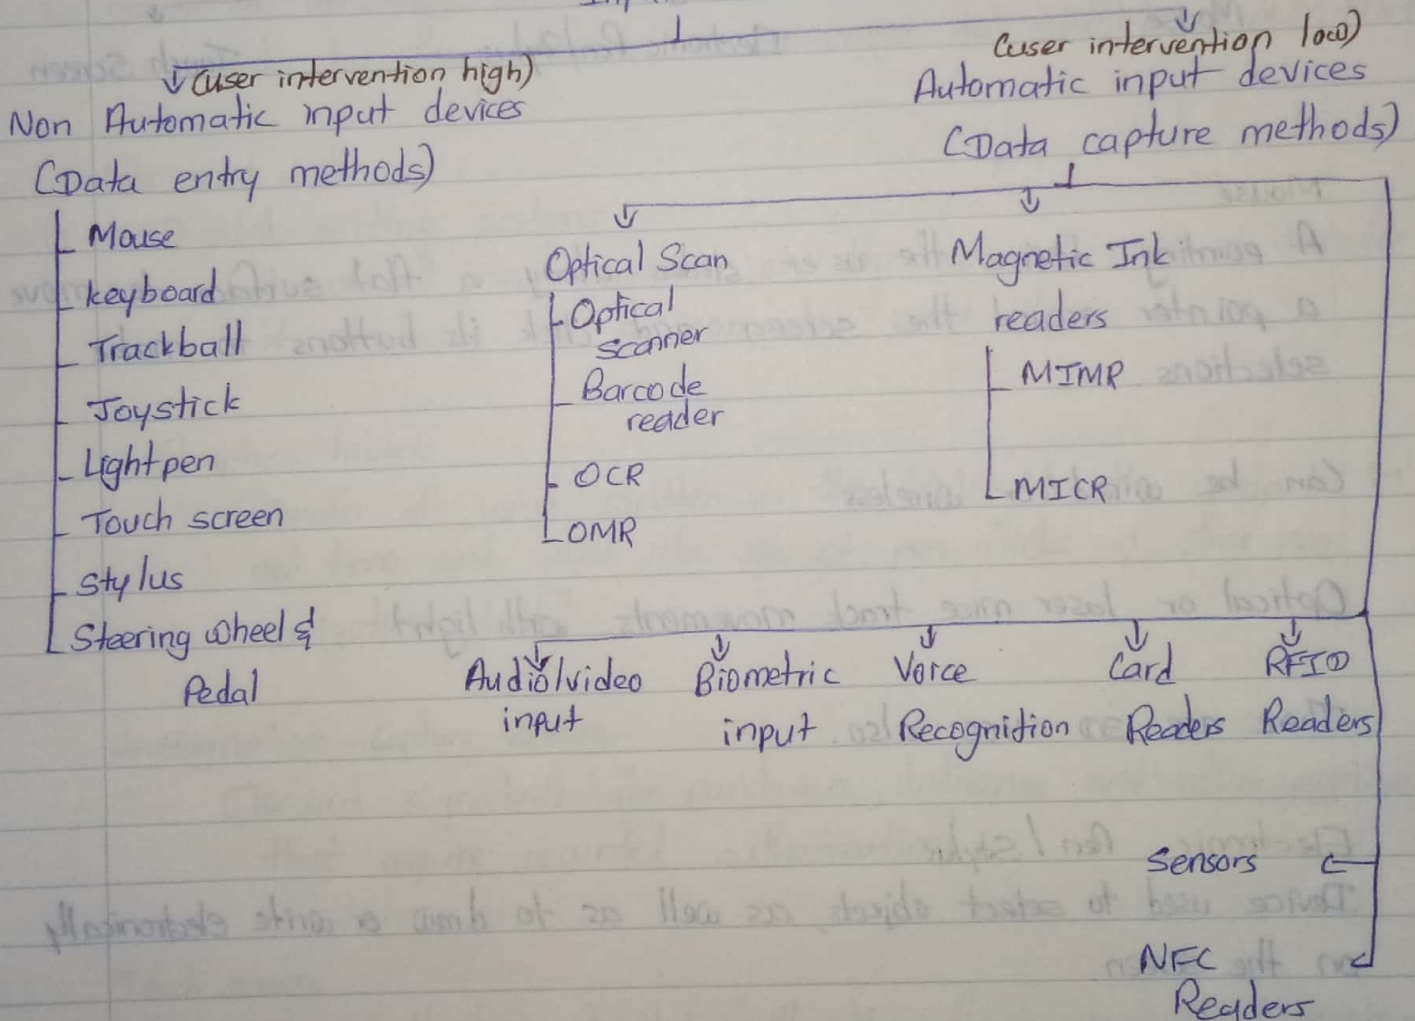 (user intervention high)
Non Automatic input devices
(Data entry methods)
Mouse
keyboard
Trackball
Joystick
Lightpen
Touch screen
Stylus
Steering wheel &
Pedal
(user intervention low)
Automatic input devices
(Data capture methods)
Optical Scan
Optical
scanner
Barcode
reader
OCR
OMR
Magnetic Ink
readers
MIMR
MICR
Audio/video
input
Biometric
input
Voice
Recognition
Card
Readers
RFID
Readers
Sensors
NFC
Readers